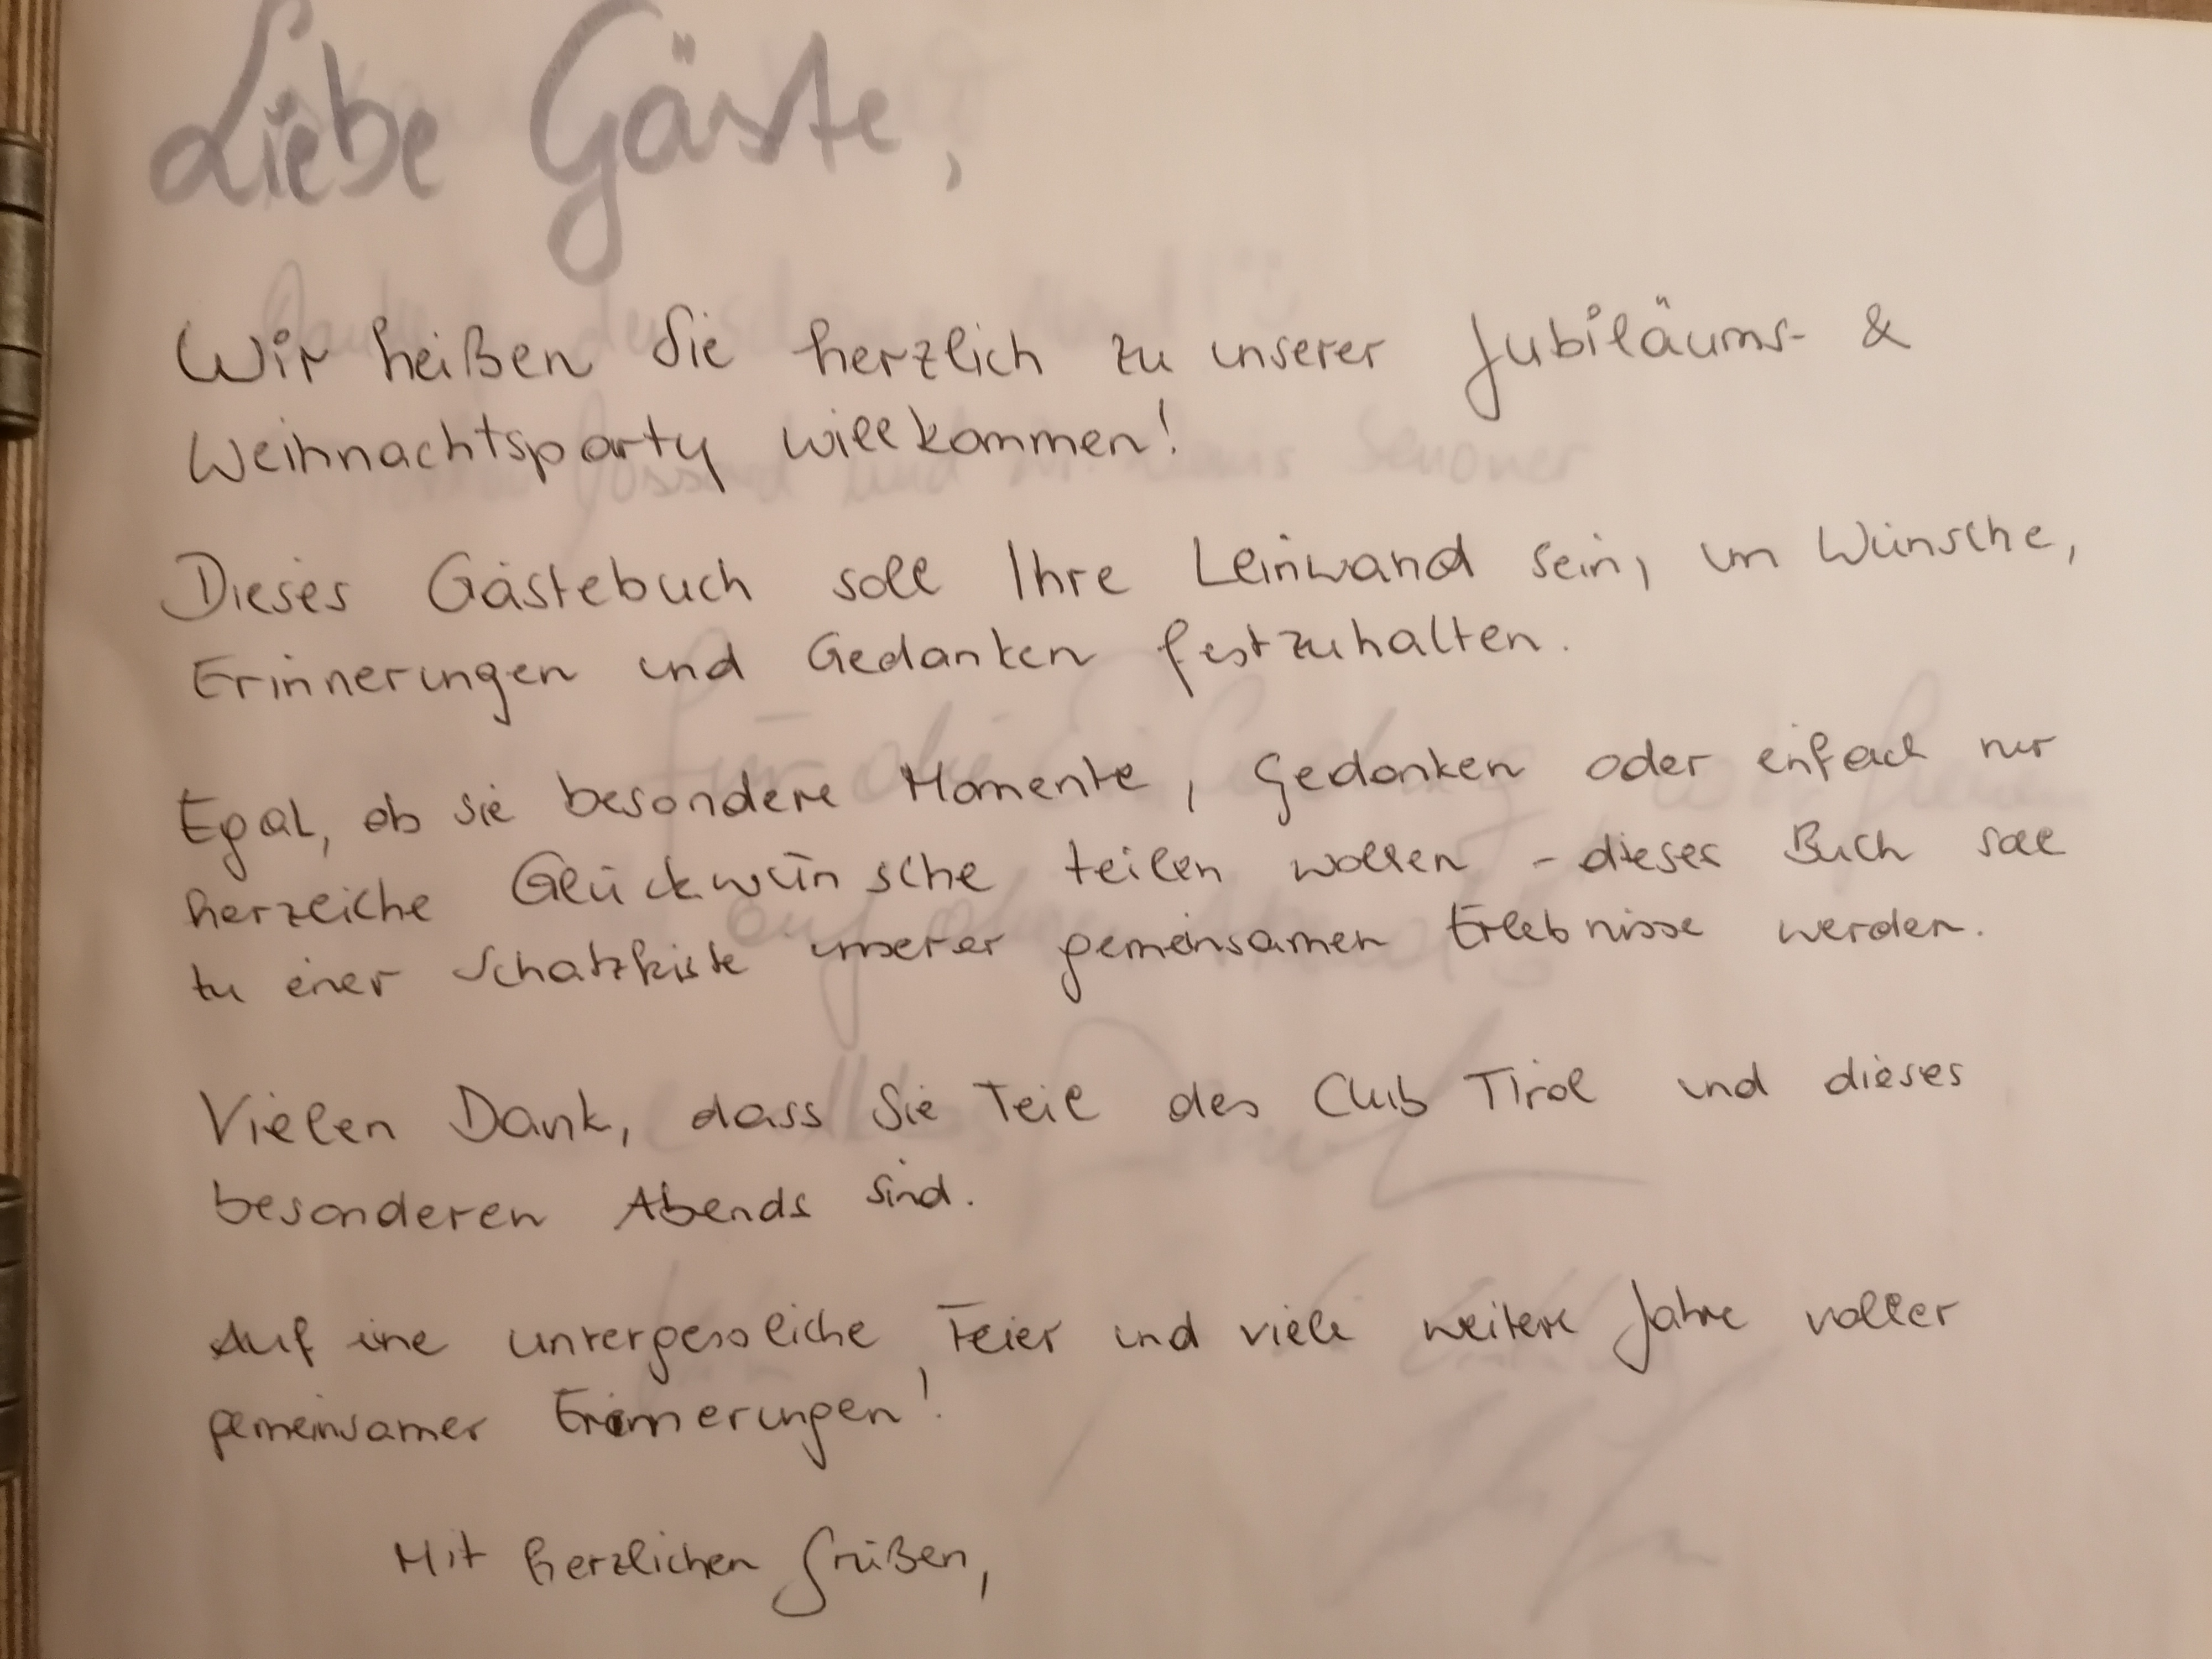 Liebe Gäste,
Wir heißen Sie herzlich zu unserer Jubiläums- &
Weihnachtsparty willkommen!
Dieses Gästebuch soll Ihre Leinwand sein, um Wünsche,
Erinnerungen und Gedanken festzuhalten.
Egal, ob sie besondere Momente, Gedanken oder einfach nur
herzliche Glückwünsche teilen wollen - dieses Buch soll
zu einer Schatzkiste unserer gemeinsamen Erlebnisse werden.
Vielen Dank, dass Sie Teil des Club Tirol und dieses
besonderen Abends sind.
Auf eine unvergessliche Feier und viele weitere Jahre voller
gemeinsamer Erinnerungen!
Mit herzlichen Grüßen,